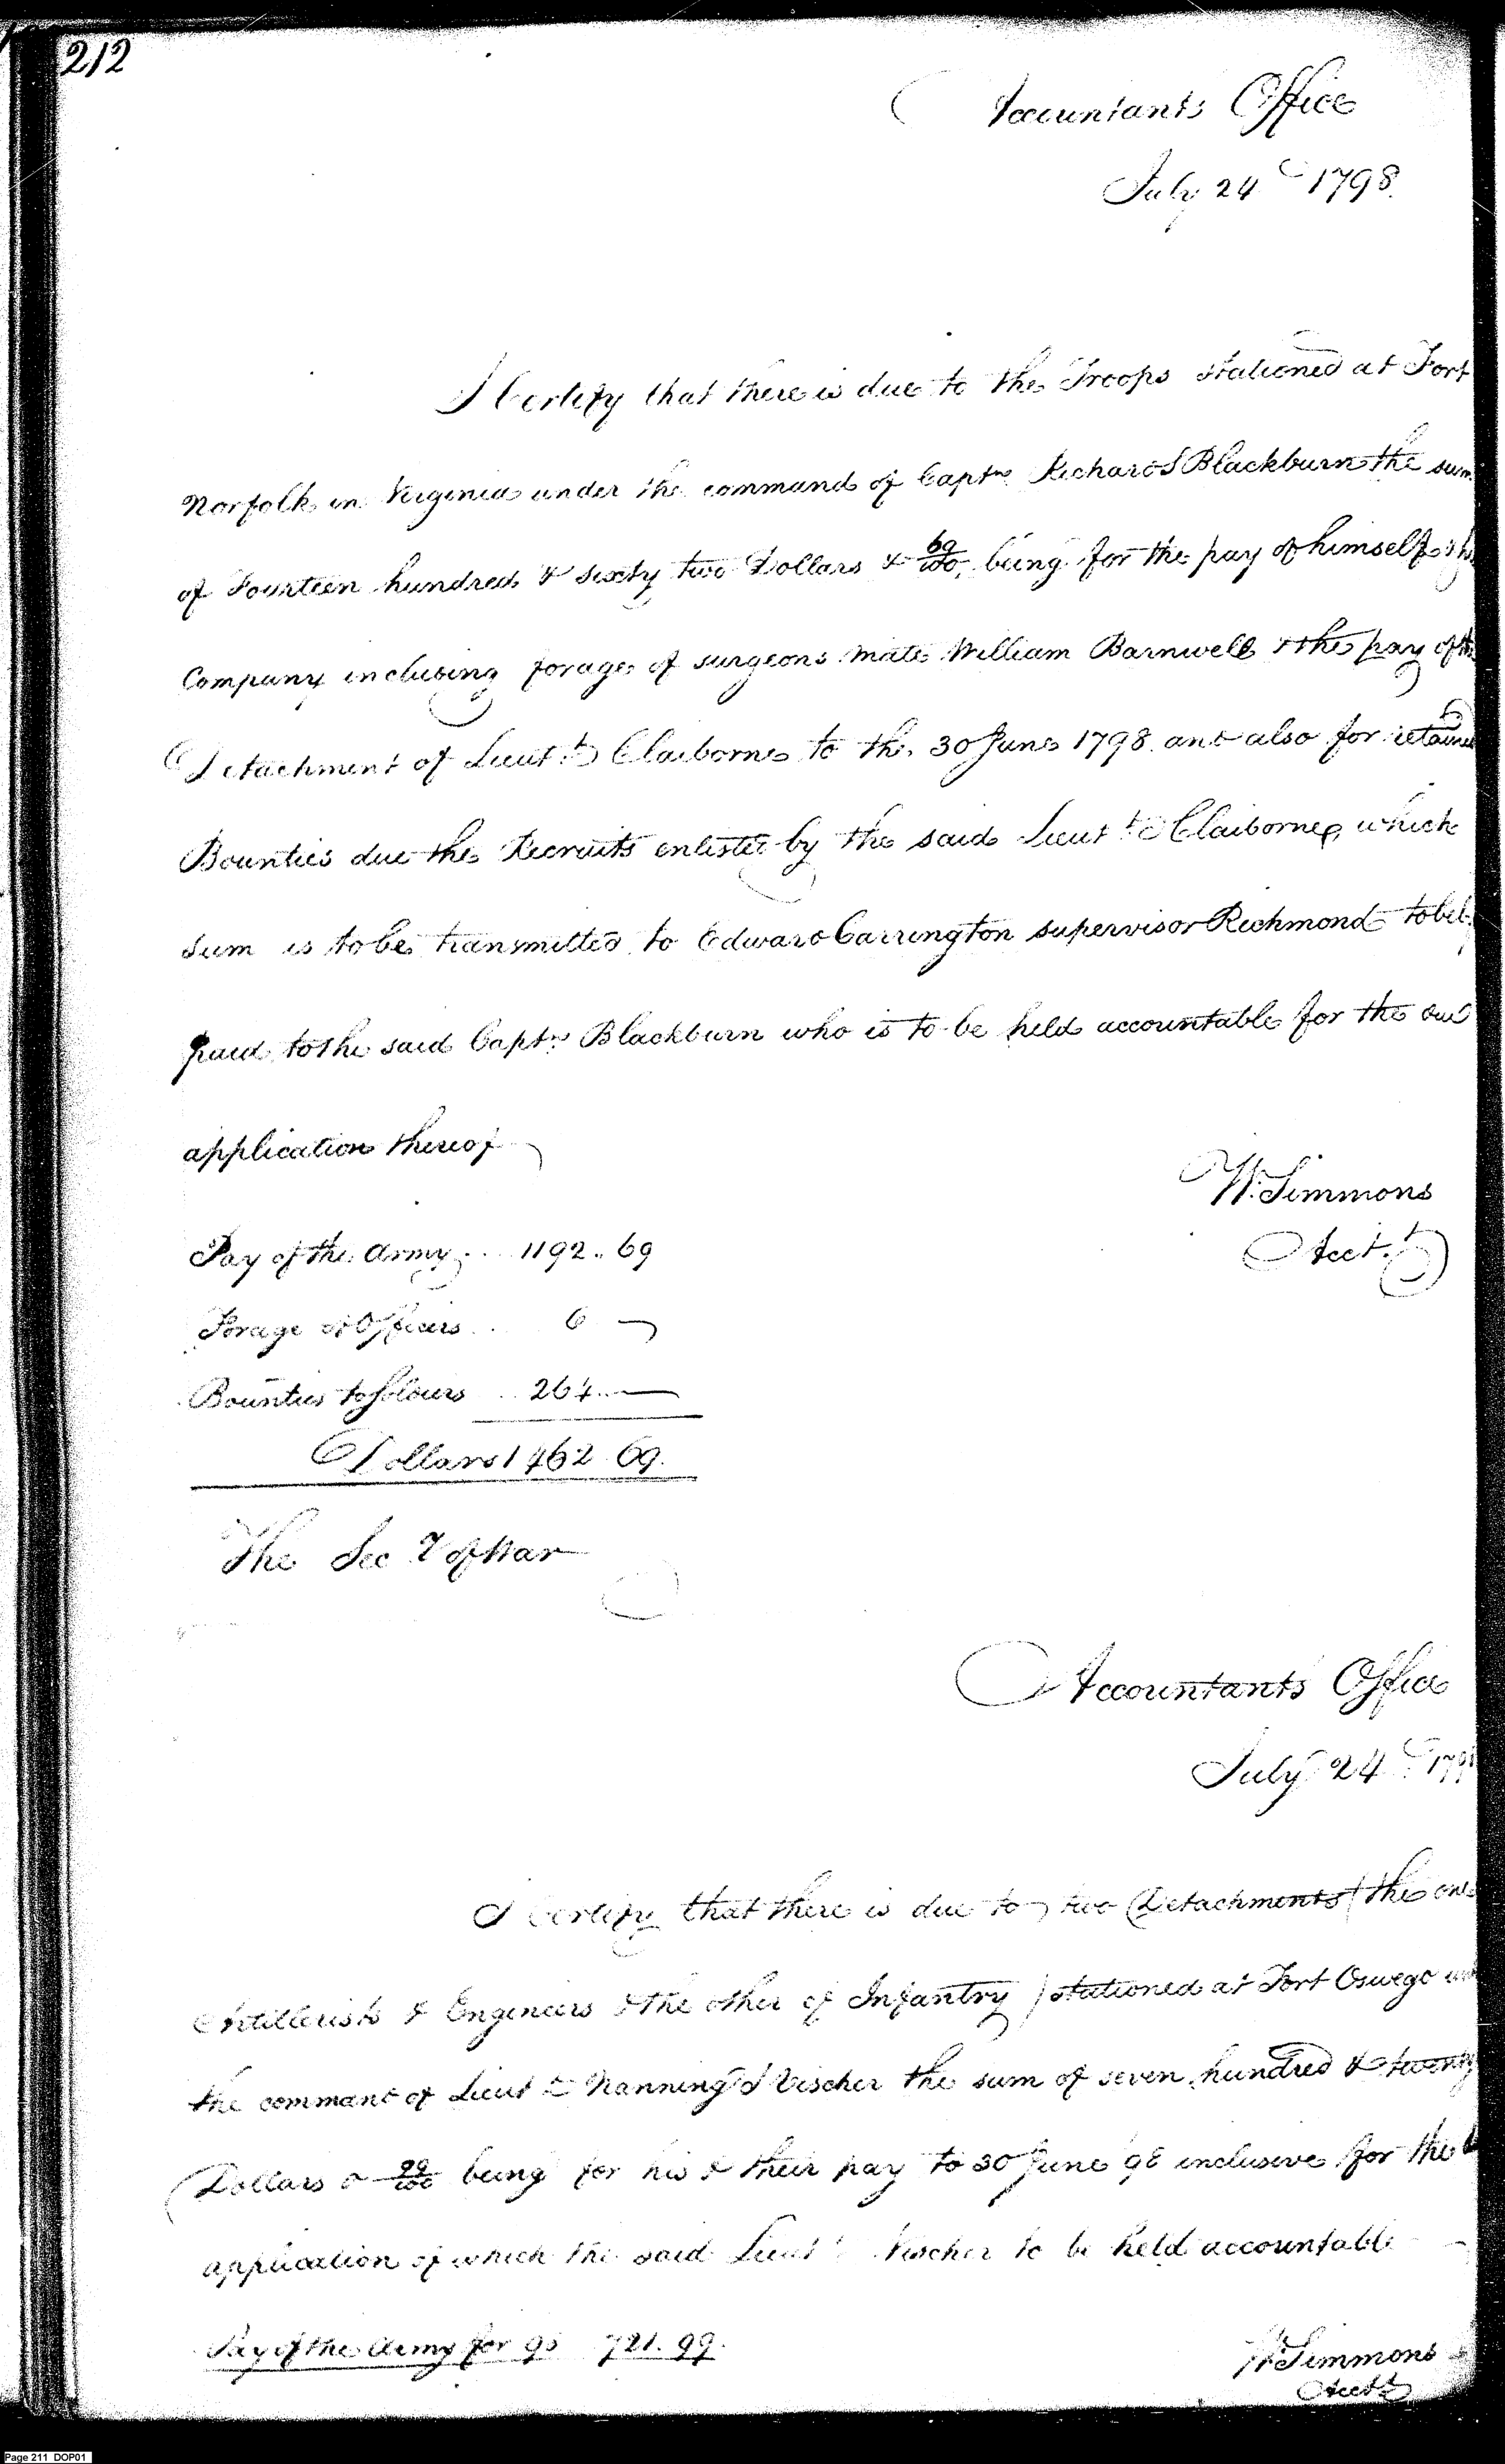 212
Accountants Office
July 24th 1798.
I Certify that there is due to the Troops stationed at Fort
Norfolk in Virginia under the command of Captn Richard S Blackburn the sum
of Fourteen hundred & sixty two Dollars & 69/100, being for the pay of himself & his
Company including forage of surgeons mate William Barnwell & the pay of the
Detachment of Lieutt Claiborne to the 30 June 1798. and also for retained
Bounties due the Recruits enlisted by the said Lieutt Claiborne, which
sum is to be transmitted to Edward Carrington supervisor Richmond to be
paid to the said Captn Blackburn who is to be held accountable for the due
application thereof
W. Simmons
Acct.
Pay of the Army ... 1192.. 69
Forage to Officers .. 6
Bounties to soldiers .. 264..
Dollars 1462. 69.
The Secy of War
Accountants Office
July 24th 179
I Certify that there is due to two Detachments / the one
Artillerists & Engineers & the other of Infantry / stationed at Fort Oswego
the command of Lieutt Nanning J Vischer the sum of seven hundred & twenty
Dollars & 99/100 being for his & their pay to 30 June 98 inclusive for the
application of which the said Lieutt Vischer to be held accountable
Pay of the Army for 98 721. 99.
W Simmons
Acctt
Page 211 DOP01